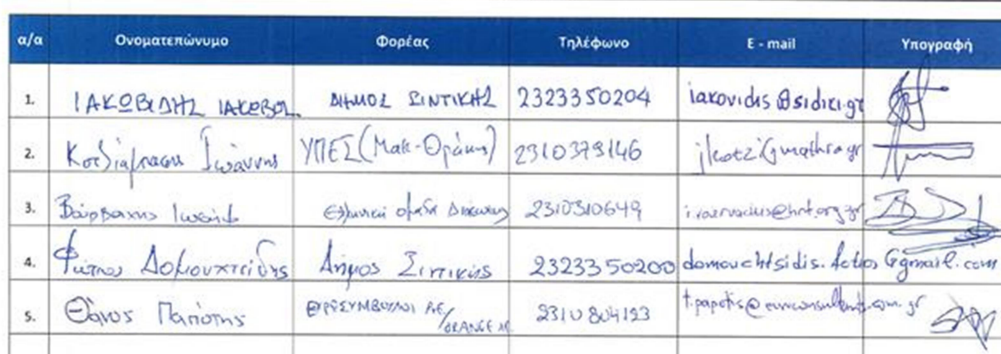 α/α Ονοματεπώνυμο Φορέας Τηλέφωνο E - mail Υπογραφή
1. ΙΑΚΩΒΙΔΗΣ ΙΑΚΩΒΟΣ ΔΗΜΟΣ ΣΙΝΤΙΚΗΣ 2323350204 iakovidis@sidiki.gr
2. Ιωάννης ΥΠΕΣ (Μακ-Θράκης) 2310379146
3. Ιωσήφ Ελληνική ομάδα Διάσωσης 2310310649
4. Φώτιος Δομουχτσίδης Δήμος Σιντικής 2323350200 domouchtsidis.fotios@gmail.com
5. Θάνος Παπότης ΕΥΡΩΣΥΜΒΟΥΛΟΙ ΑΕ/ORANGE ΑΕ 2310804123 t.papotis@euroconsultants.com.gr